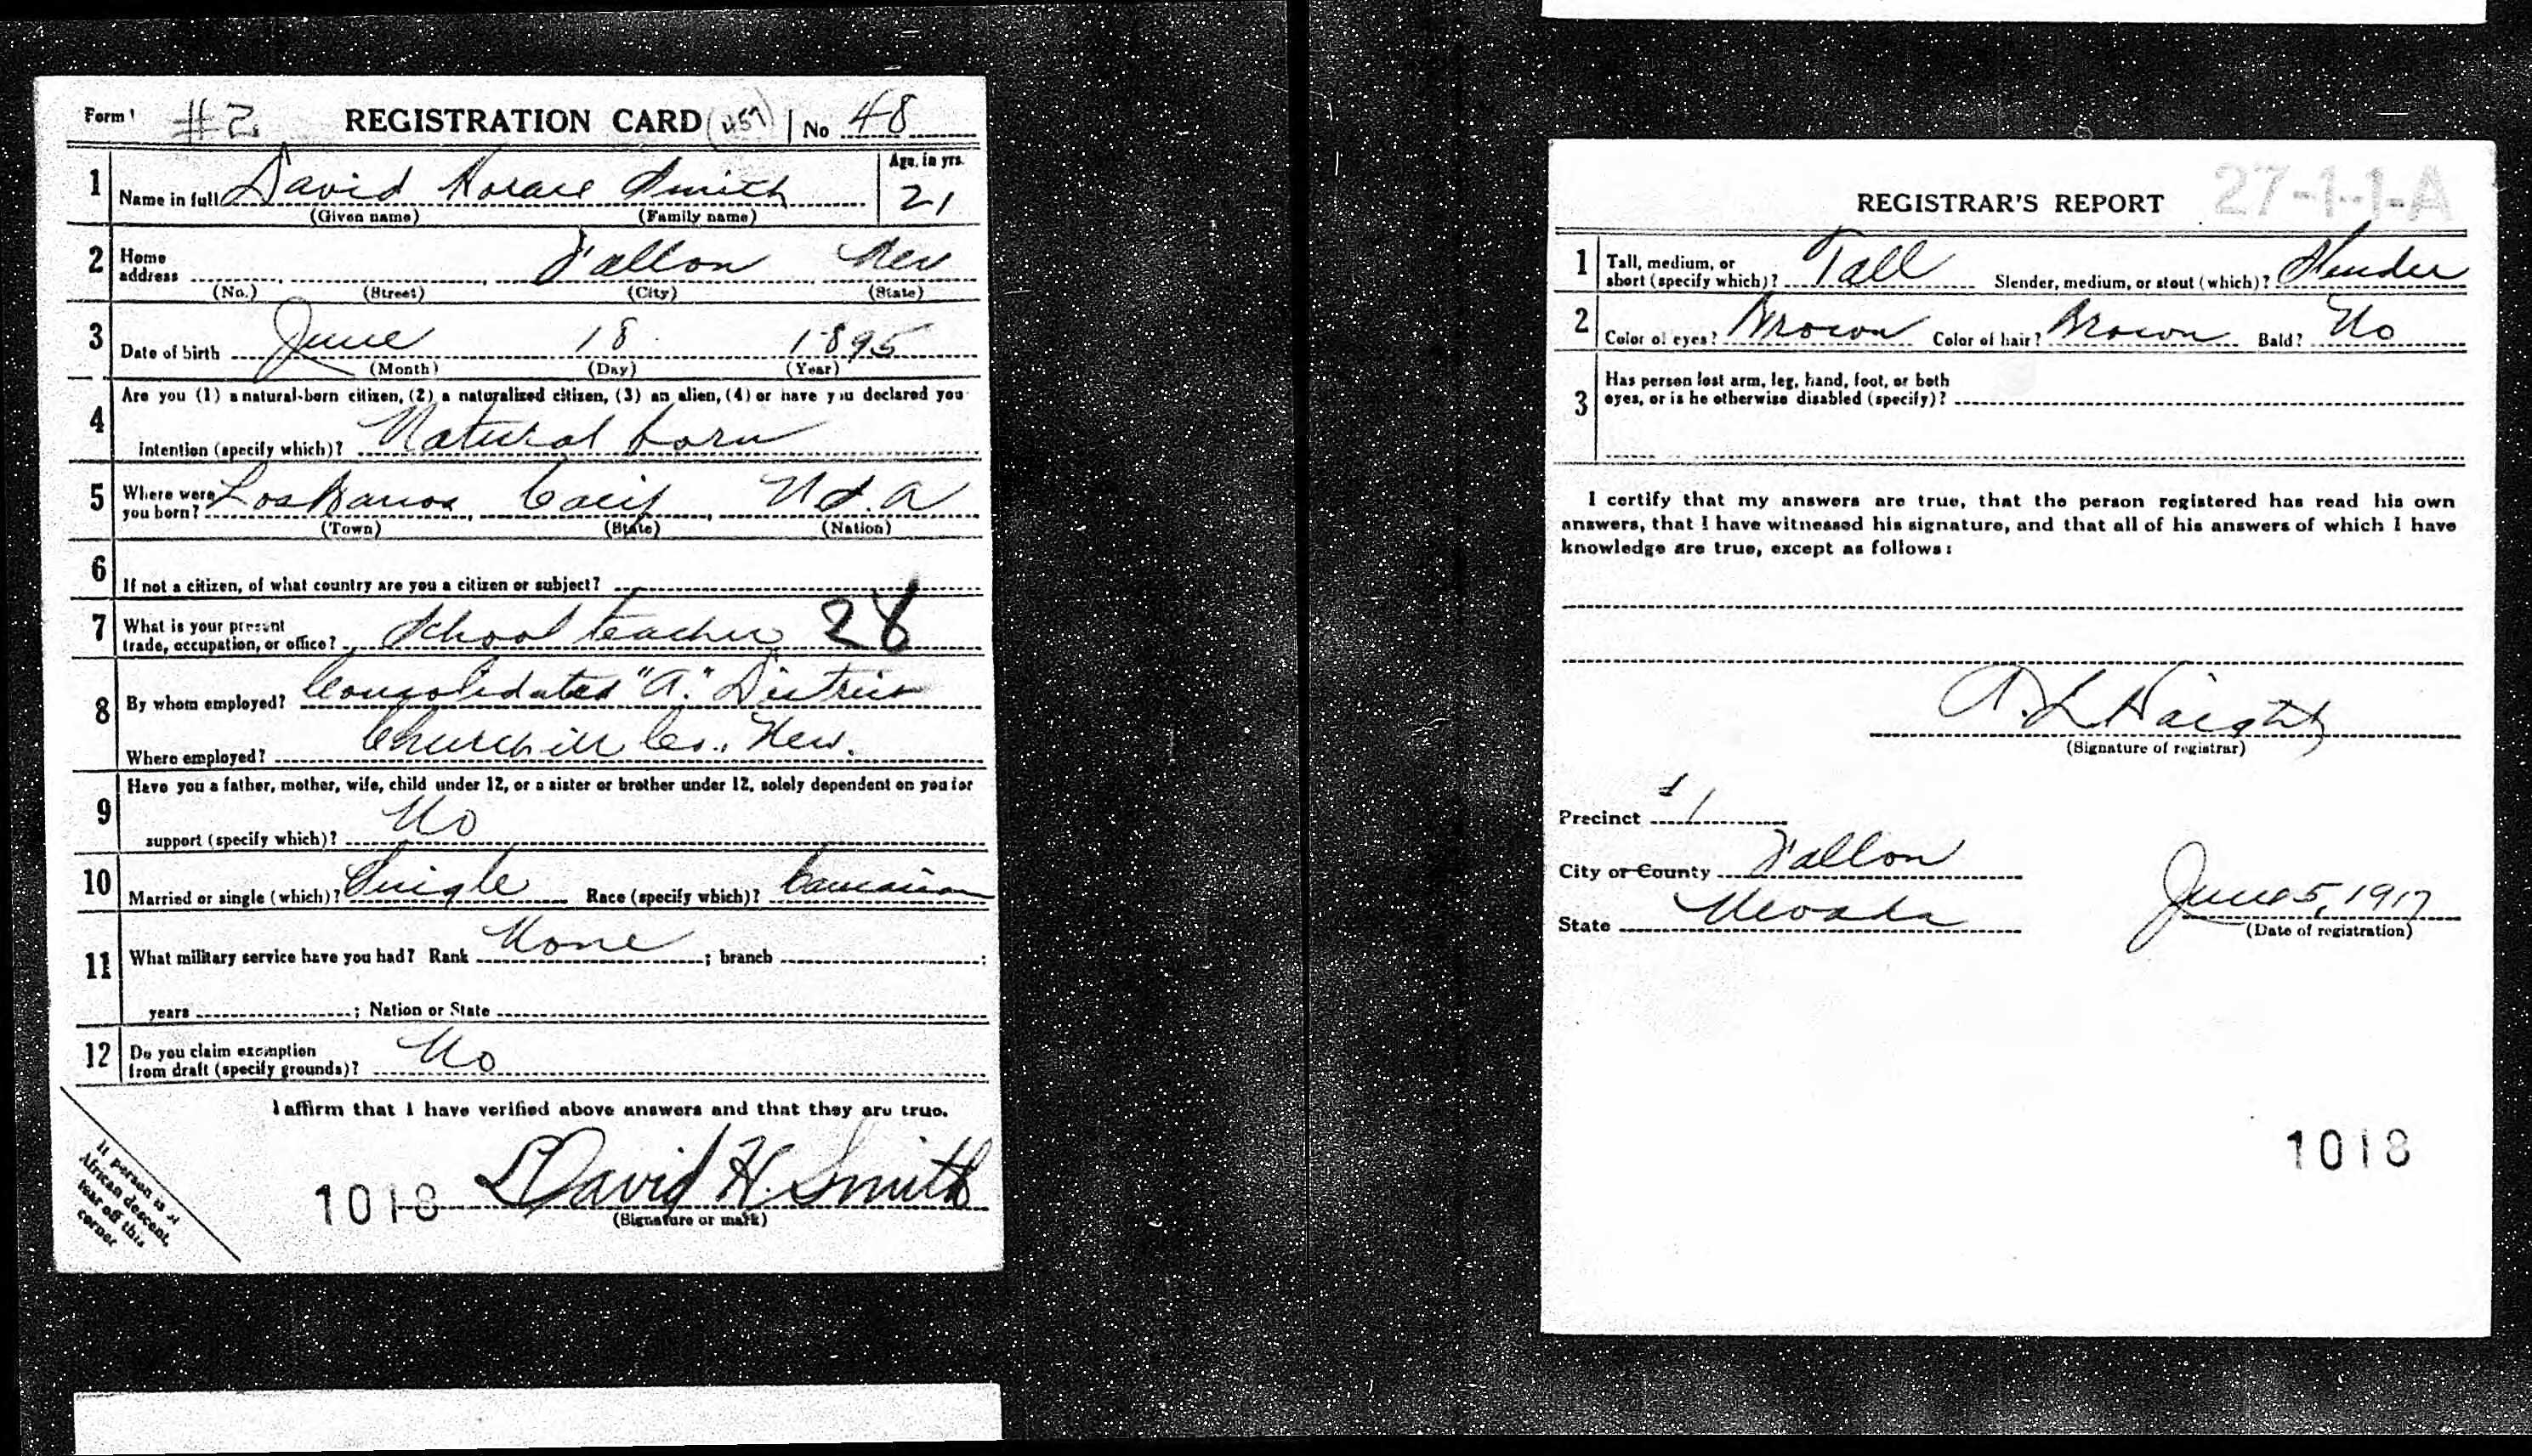 Form 1 #2 REGISTRATION CARD (457) No 48
1 Name in full David Horace Smith Age, in yrs. 21
(Given name) (Family name)
2 Home address Fallon Nev
(No.) (Street) (City) (State)
3 Date of birth June 18 1895
(Month) (Day) (Year)
4 Are you (1) a natural-born citizen, (2) a naturalized citizen, (3) an alien, (4) or have you declared your
intention (specify which)? Natural born
5 Where were you born? Los Banos Calif U.S.A
(Town) (State) (Nation)
6 If not a citizen, of what country are you a citizen or subject?
7 What is your present trade, occupation, or office? School teacher 28
8 By whom employed? Consolidated "A." District
Where employed? Churchill Co., Nev.
9 Have you a father, mother, wife, child under 12, or a sister or brother under 12, solely dependent on you for
support (specify which)? No
10 Married or single (which)? Single Race (specify which)? Caucasian
11 What military service have you had? Rank None ; branch ;
years ; Nation or State
12 Do you claim exemption from draft (specify grounds)? No
I affirm that I have verified above answers and that they are true.
1018 David H. Smith
(Signature or mark)
If person is of
African descent,
tear off this
corner
27-1-1-A
REGISTRAR'S REPORT
1 Tall, medium, or short (specify which)? Tall Slender, medium, or stout (which)? Slender
2 Color of eyes? Brown Color of hair? Brown Bald? No
3 Has person lost arm, leg, hand, foot, or both
eyes, or is he otherwise disabled (specify)?
I certify that my answers are true, that the person registered has read his own
answers, that I have witnessed his signature, and that all of his answers of which I have
knowledge are true, except as follows:
A. L. Haight
(Signature of registrar)
Precinct 1
City or County Fallon
State Nevada June 5, 1917
(Date of registration)
1018